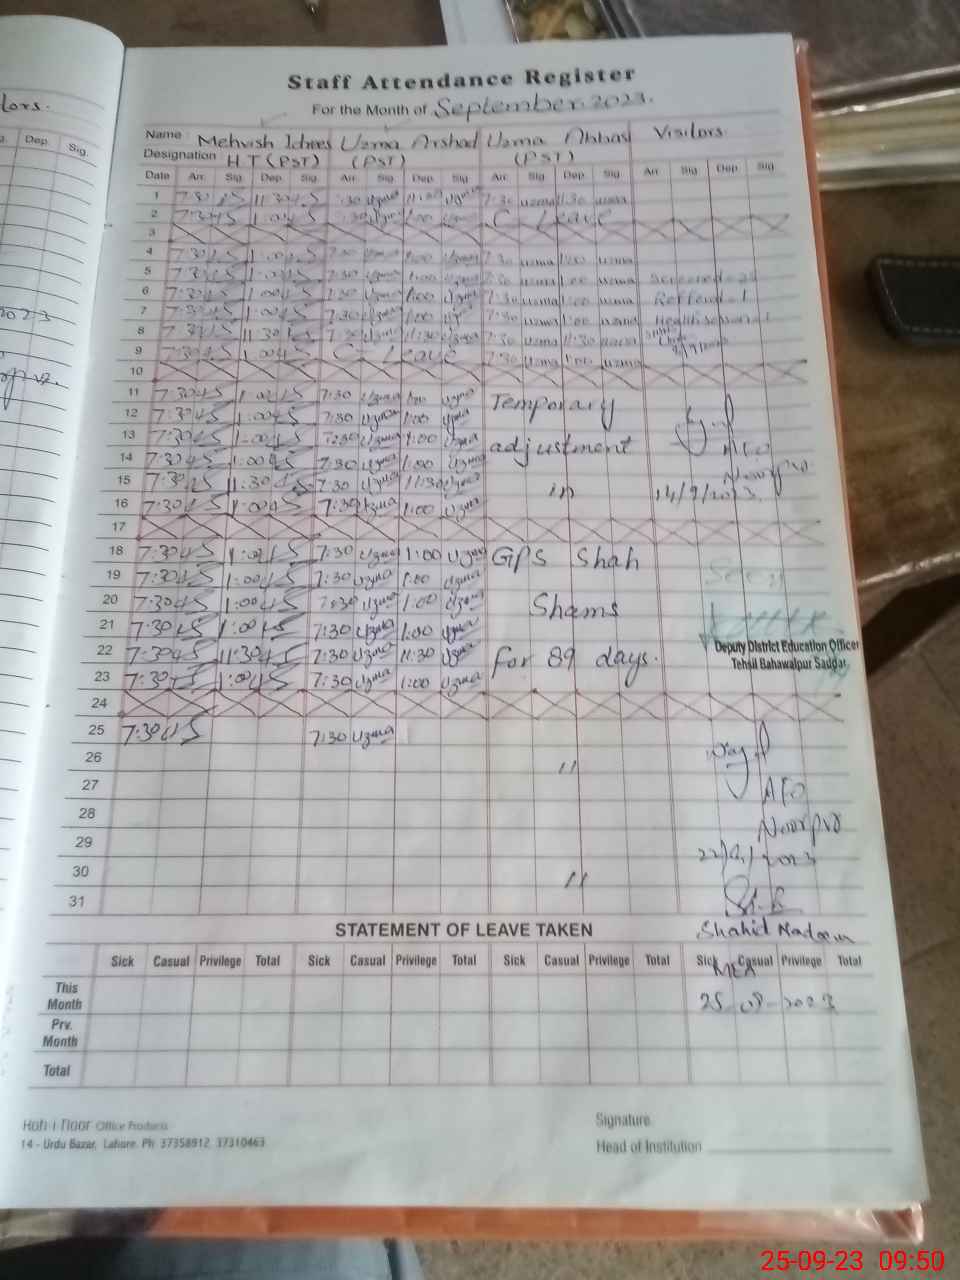 lors.
g. Dep. Sig.
2023
Staff Attendance Register
For the Month of September. 2023.
Name : Mehvish Idrees Uzma Arshad Uzma Abbas Visitors
Designation H.T (PST) (PST) (PST)
Date Arr. Sig. Dep. Sig. Arr. Sig. Dep. Sig. Arr. Sig. Dep. Sig. Arr. Sig. Dep. Sig.
1 7:30 11:30 :30 Uzma 11:30 Uzma 7:30 uzma 11:30 uzma
2 7:30 1:00 :30 Uzma 1:00 Uzma C-Leave
3
4 7:30 1:00 7:30 Uzma 1:00 Uzma 7:30 uzma 1:00 uzma
5 7:30 1:00 7:30 Uzma 1:00 Uzma 7:30 uzma 1:00 uzma Screened-
6 7:30 1:00 7:30 Uzma 1:00 Uzma 7:30 uzma 1:00 uzma
7 7:30 1:00 7:30 Uzma 1:00 Uzma 7:30 uzma 1:00 uzma
8 7:30 11:30 7:30 Uzma 11:30 Uzma 7:30 uzma 11:30 uzma
9 7:30 1:00 C-Leave 7:30 uzma 1:00 uzma
10
11 7:30 1:00 7:30 Uzma 1:00 Uzma Temporary
12 7:30 1:00 7:30 Uzma 1:00 Uzma
13 7:30 1:00 7:30 Uzma 1:00 Uzma adjustment AEO
14 7:30 1:00 7:30 Uzma 1:00 Uzma Noorpur
15 7:30 11:30 7:30 Uzma 11:30 Uzma in 14/9/2023.
16 7:30 1:00 7:30 Uzma 1:00 Uzma
17
18 7:30 1:00 7:30 Uzma 1:00 Uzma GPS Shah
19 7:30 1:00 7:30 Uzma 1:00 Uzma Seen
20 7:30 1:00 7:30 Uzma 1:00 Uzma Shams
21 7:30 1:00 7:30 Uzma 1:00 Uzma
22 7:30 11:30 7:30 Uzma 11:30 Uzma for 89 days. Deputy District Education Officer
23 7:30 1:00 7:30 Uzma 1:00 Uzma Tehsil Bahawalpur Saddar
24
25 7:30 7:30 Uzma
26 "
27 AEO
28 Noorpur
29 22/9/2023
30 "
31
STATEMENT OF LEAVE TAKEN Shahid Nadeem
Sick Casual Privilege Total Sick Casual Privilege Total Sick Casual Privilege Total Sick Casual Privilege Total
MEA
This Month 25-09-2023
Prv. Month
Total
Office Products
14 - Urdu Bazar, Lahore. Ph: 37358912, 37310463
Signature
Head of Institution
25-09-23 09:50